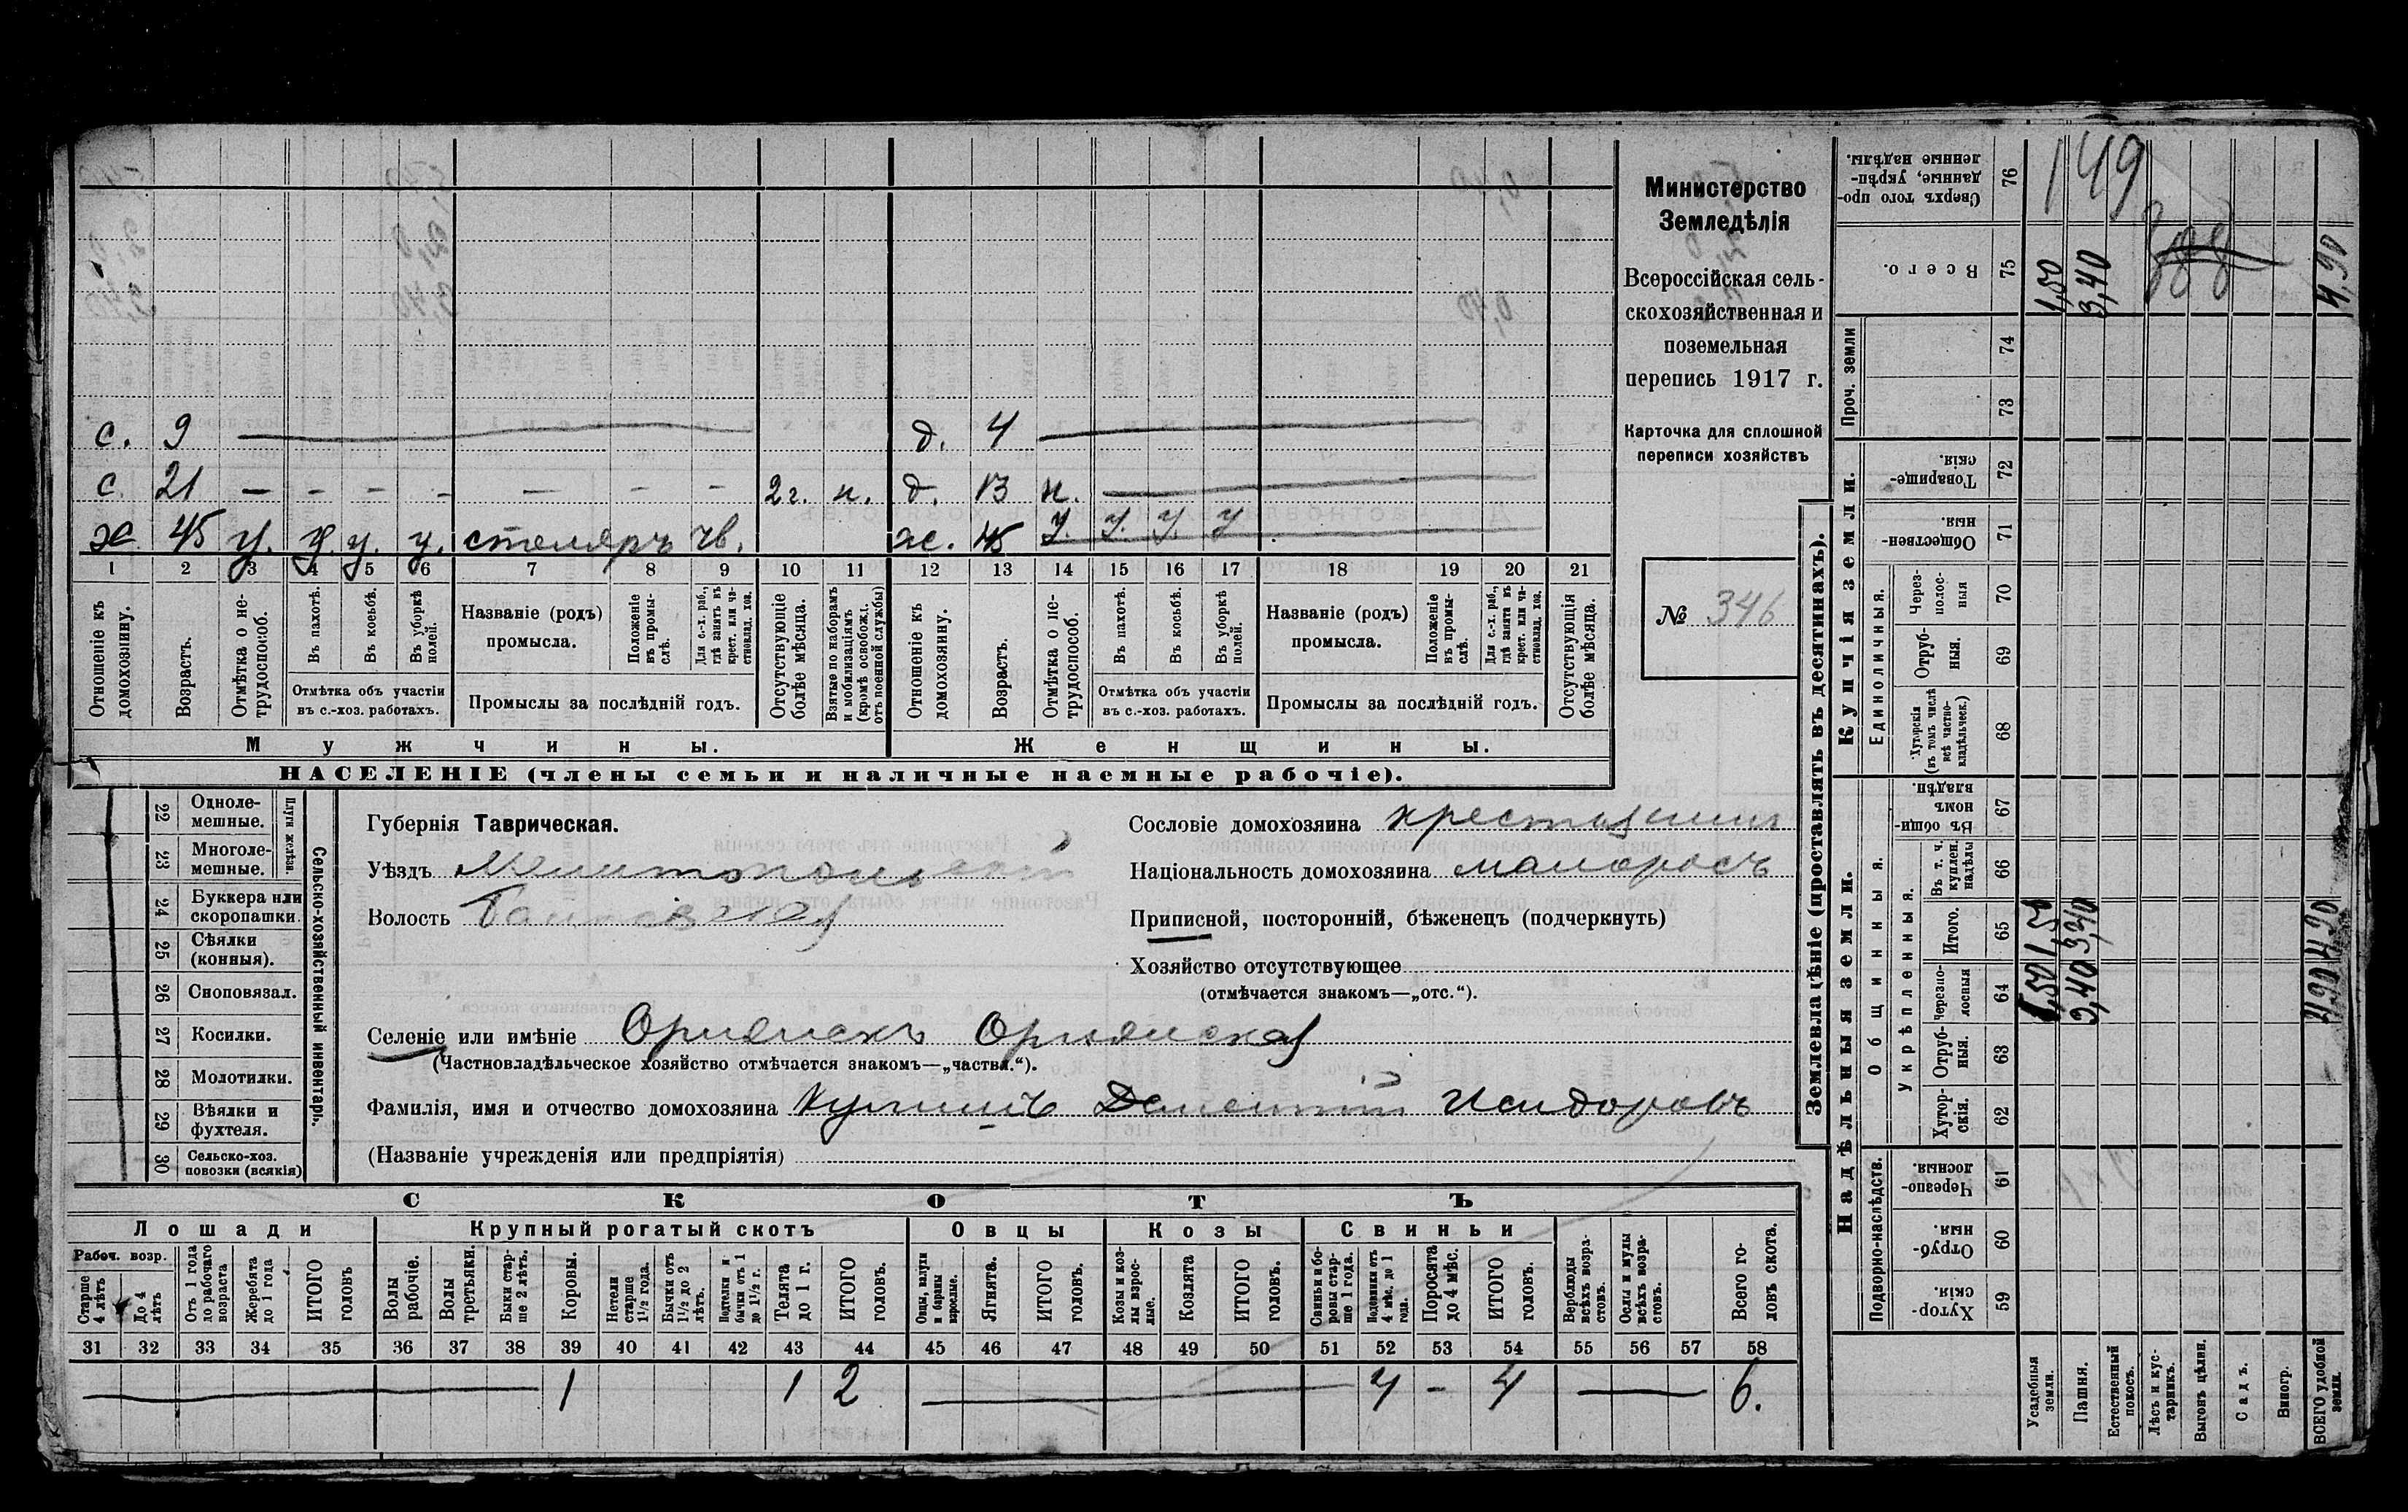 с. 9 д. 4
с. 21 — — — — — — — 2 г. н. д. 13 н.
х 45 у. у. у. у. столяръ чв. ж. 45 у. у. у. у
1 2 3 4 5 6 7 8 9 10 11 12 13 14 15 16 17 18 19 20 21
Отношеніе къ домохозяину.
Возрастъ.
Отмѣтка о не-трудоспособ.
Въ пахотѣ.
Въ косьбѣ.
Въ уборкѣ полей.
Отмѣтка объ участіи
въ с.-хоз. работахъ.
Названіе (родъ)
промысла.
Положеніе въ промы-слѣ.
Для с.-х. раб., гдѣ занятъ въ крест. или ча-стновлад. хоз.
Промыслы за послѣдній годъ.
Отсутствующіе болѣе мѣсяца.
Взятые по наборамъ и мобилизаціямъ (кромѣ освобожд. отъ военной службы)
Отношеніе къ домохозяину.
Возрастъ.
Отмѣтка о не-трудоспособ.
Въ пахотѣ.
Въ косьбѣ.
Въ уборкѣ полей.
Отмѣтка объ участіи
въ с.-хоз. работахъ.
Названіе (родъ)
промысла.
Положеніе въ промы-слѣ.
Для с.-х. раб., гдѣ занята въ крест. или ча-стновлад. хоз.
Промыслы за послѣдній годъ.
Отсутствующія болѣе мѣсяца.
Мужчины.
Женщины.
НАСЕЛЕНІЕ (члены семьи и наличные наемные рабочіе).
Министерство
Земледѣлія
Всероссійская сель-
скохозяйственная и
поземельная
перепись 1917 г.
Карточка для сплошной
переписи хозяйствъ
№ 346
22 Одноле-мешные.
23 Многоле-мешные.
Плуги желѣзн.
24 Буккера или скоропашки.
25 Сѣялки (конныя).
26 Сноповязал.
27 Косилки.
28 Молотилки.
29 Вѣялки и фухтеля.
30 Сельско-хоз. повозки (всякія)
Сельско-хозяйственный инвентарь.
Губернія Таврическая.
Уѣздъ Мелитопольскій
Волость
Сословіе домохозяина крестьянинъ
Національность домохозяина малоросъ
Приписной, посторонній, бѣженецъ (подчеркнуть)
Хозяйство отсутствующее
(отмѣчается знакомъ—„отс.“).
Селеніе или имѣніе Орлянскъ Орлянская
(Частновладѣльческое хозяйство отмѣчается знакомъ—„частвл.“).
Фамилія, имя и отчество домохозяина Дементій Исидоровъ
(Названіе учрежденія или предпріятія)
СКОТЪ
Лошади
Крупный рогатый скотъ
Овцы
Козы
Свиньи
Рабоч. возр.
Старше 4 лѣтъ
До 4 лѣтъ
Отъ 1 года до рабочаго возраста
Жеребята до 1 года
ИТОГО головъ
Волы рабочіе.
Волы третьяки.
Быки стар-ше 2 лѣтъ.
Коровы.
Нетели старше 1½ года.
Бычки отъ 1½ до 2 лѣтъ.
Подтелки и бычки отъ 1 до 1½ г.
Телята до 1 г.
ИТОГО головъ.
Овцы, валухи и бараны взрослые.
Ягнята.
ИТОГО головъ.
Козы и коз-лы взрос-лые.
Козлята
ИТОГО головъ.
Свиньи и бо-ровы стар-ше 1 года.
Подсвинки отъ 4 мѣс. до 1 года.
Поросята до 4 мѣс.
ИТОГО головъ.
Верблюды всѣхъ возра-стовъ.
Ослы и мулы всѣхъ возра-стовъ.
Всего го-ловъ скота.
31 32 33 34 35 36 37 38 39 40 41 42 43 44 45 46 47 48 49 50 51 52 53 54 55 56 57 58
1 1 2 4 – 4 6.
Землевладѣніе (проставлять въ десятинахъ).
Надѣльныя земли.
Купчія земли.
Проч. земли
Подворно-наслѣдств.
Общинныя.
Укрѣпленныя.
Единоличныя.
Сверхъ того про-данные, укрѣп-ленные надѣлы. 76
Всего. 75
74
73
Товарище-скія. 72
Обществен-ныя. 71
Через-полос-ныя 70
Отруб-ныя. 69
Хуторскія (въ томъ числѣ всѣ частно-владѣльческ.) 68
Въ общин-номъ владѣн. 67
Въ т. ч. куплен. надѣлы 66
Итого. 65
Черезпо-лосныя 64
Отруб-ныя. 63
Хутор-скія. 62
Черезпо-лосныя 61
Отруб-ныя. 60
Хутор-скія. 59
Усадебныя земли.
Пашня.
Естественный покосъ.
Лѣсъ и кус-тарникъ.
Выгонъ цѣлин.
Садъ.
Виногр.
ВСЕГО удобной земли.
149
1,50 3,40 4,90
1,50 3,40 4,90
1,50 3,40 4,90